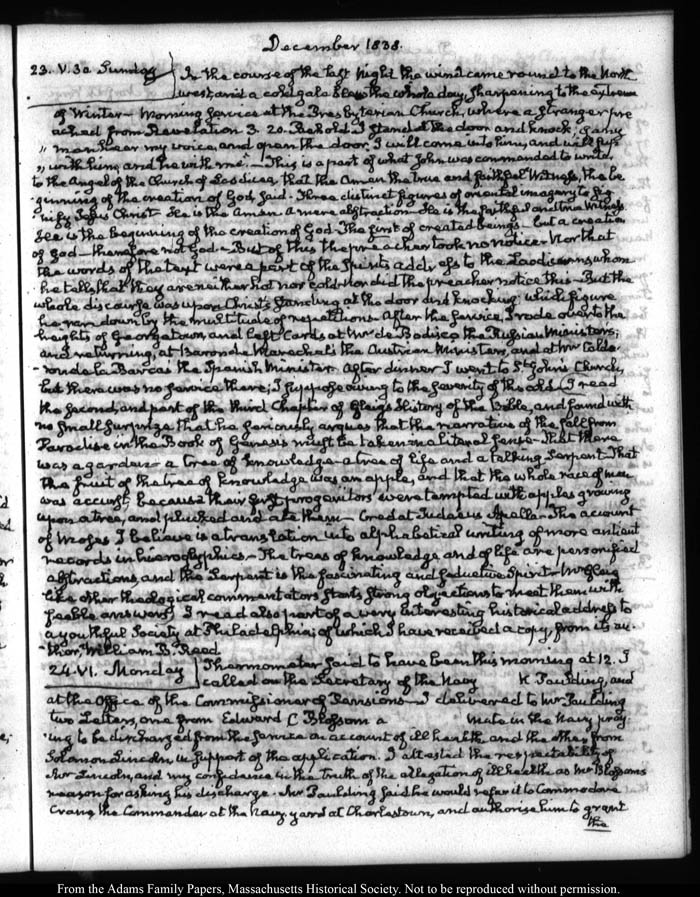 December 1838.
23. V.30 Sunday
In the course of the last Night the wind came round to the North
west, and a cold gale blew the whole day, sharpening to the extreme
of Winter— Morning service at the Presbyterian Church, where a stranger pre
ached from Revelation 3. 20. Behold I stand at the door and knock; if any
„ man hear my voice, and open the door, I will come in to him, and will sup
„ with him, and he with me". — This is a part of what John was commanded to write,
to the Angel of the Church of Laodicea, that the Amen the true and faithful Witness, the be
ginning of the creation of God, said. Three distinct figures of oriental imagery to sig
nify Jesus Christ— He is the Amen a mere abstraction— He is the faithful and true Witness.
He is the beginning of the creation of God. The first of created beings— but a creation
of God— therefore not God.— But of this the preacher took no notice— Nor that
the words of the text were a part of the Spirits address to the Laodiceans whom
he tells that they are neither hot nor cold. Nor did the preacher notice this— But the
whole discourse was upon Christ's standing at the door and knocking; which figure
he ran down by the multitude of repetitions. After the service, I rode over to the
heights of Georgetown, and left Cards at Mr de Bodisco the Russian Ministers;
and returning, at Baron de Mareschal's the Austrian Ministers, and at Mr Calde
ron de la Barcas the Spanish Minister. After dinner I went to St. John's Church,
but there was no service there; I suppose owing to the severity of the cold. I read
the second, and part of the third Chapter of Gleig's History of the Bible, and found with
no small surprize that he seriously argues that the narrative of the fall from
Paradise in the Book of Genesis must be taken in a literal sense— that there
was a garden— a tree of knowledge— a tree of life and a talking serpent. That
the fruit of the tree of knowledge was an apple, and that the whole race of men
was accurst, because their first progenitors were tempted with apples growing
upon a tree, and plucked and ate them— Credat Judaeus Apella— The account
of Moses I believe is a translation into alphabetical writing of more antient
records in hieroglyphics— The trees of knowledge and of life are personified
abstractions, and the Serpent is the fascinating and seductive Spirit— Mr Gleig
like other theological commentators starts strong objections to meet them with
feeble answers. I read also part of a very interesting historical address to
a youthful Society at Philadelphia; of which I have received a copy, from its au
thor, William B. Reed.
24. VI. Monday
Thermometer said to have been this morning at 12. I
called on the Secretary of the Navy K Paulding, and
at the Office of the Commissioner of Pensions— I delivered to Mr Paulding
two Letters, one from Edward C Blossom a Mate in the Navy pray
ing to be discharged from the service on account of ill health, and the other from
Solomon Lincoln, in support of the application. I attested the respectability of
Mr Lincoln, and my confidence in the truth of the allegation of ill health as Mr Blossoms
reason for asking his discharge. Mr Paulding said he would refer it to Commodore
Crane the Commander at the Navy yard at Charlestown, and authorise him to grant
the
From the Adams Family Papers, Massachusetts Historical Society. Not to be reproduced without permission.